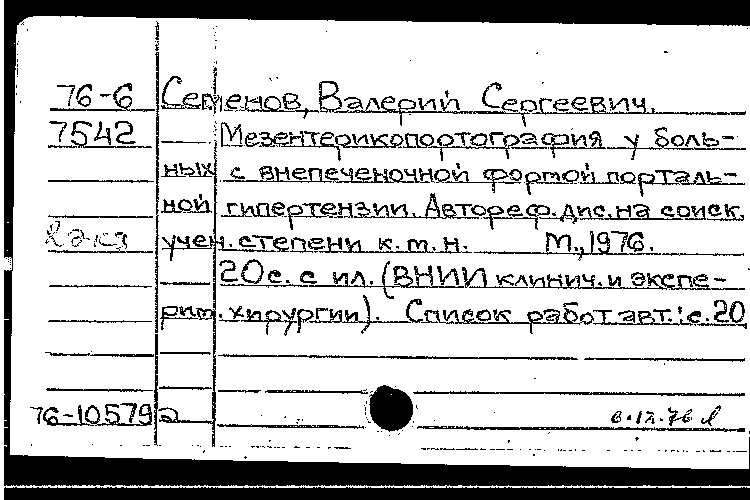 76-6 Семенов, Валерий Сергеевич.
7542 Мезентерикопортография у боль-
ных с внепеченочной формой порталь-
ной гипертензии. Автореф. дис. на соиск.
2 экз учен. степени к. м. н. М., 1976.
20 с. с ил. (ВНИИ клинич. и экспе-
рим. хирургии). Список работ авт.: с. 20
76-10579 а